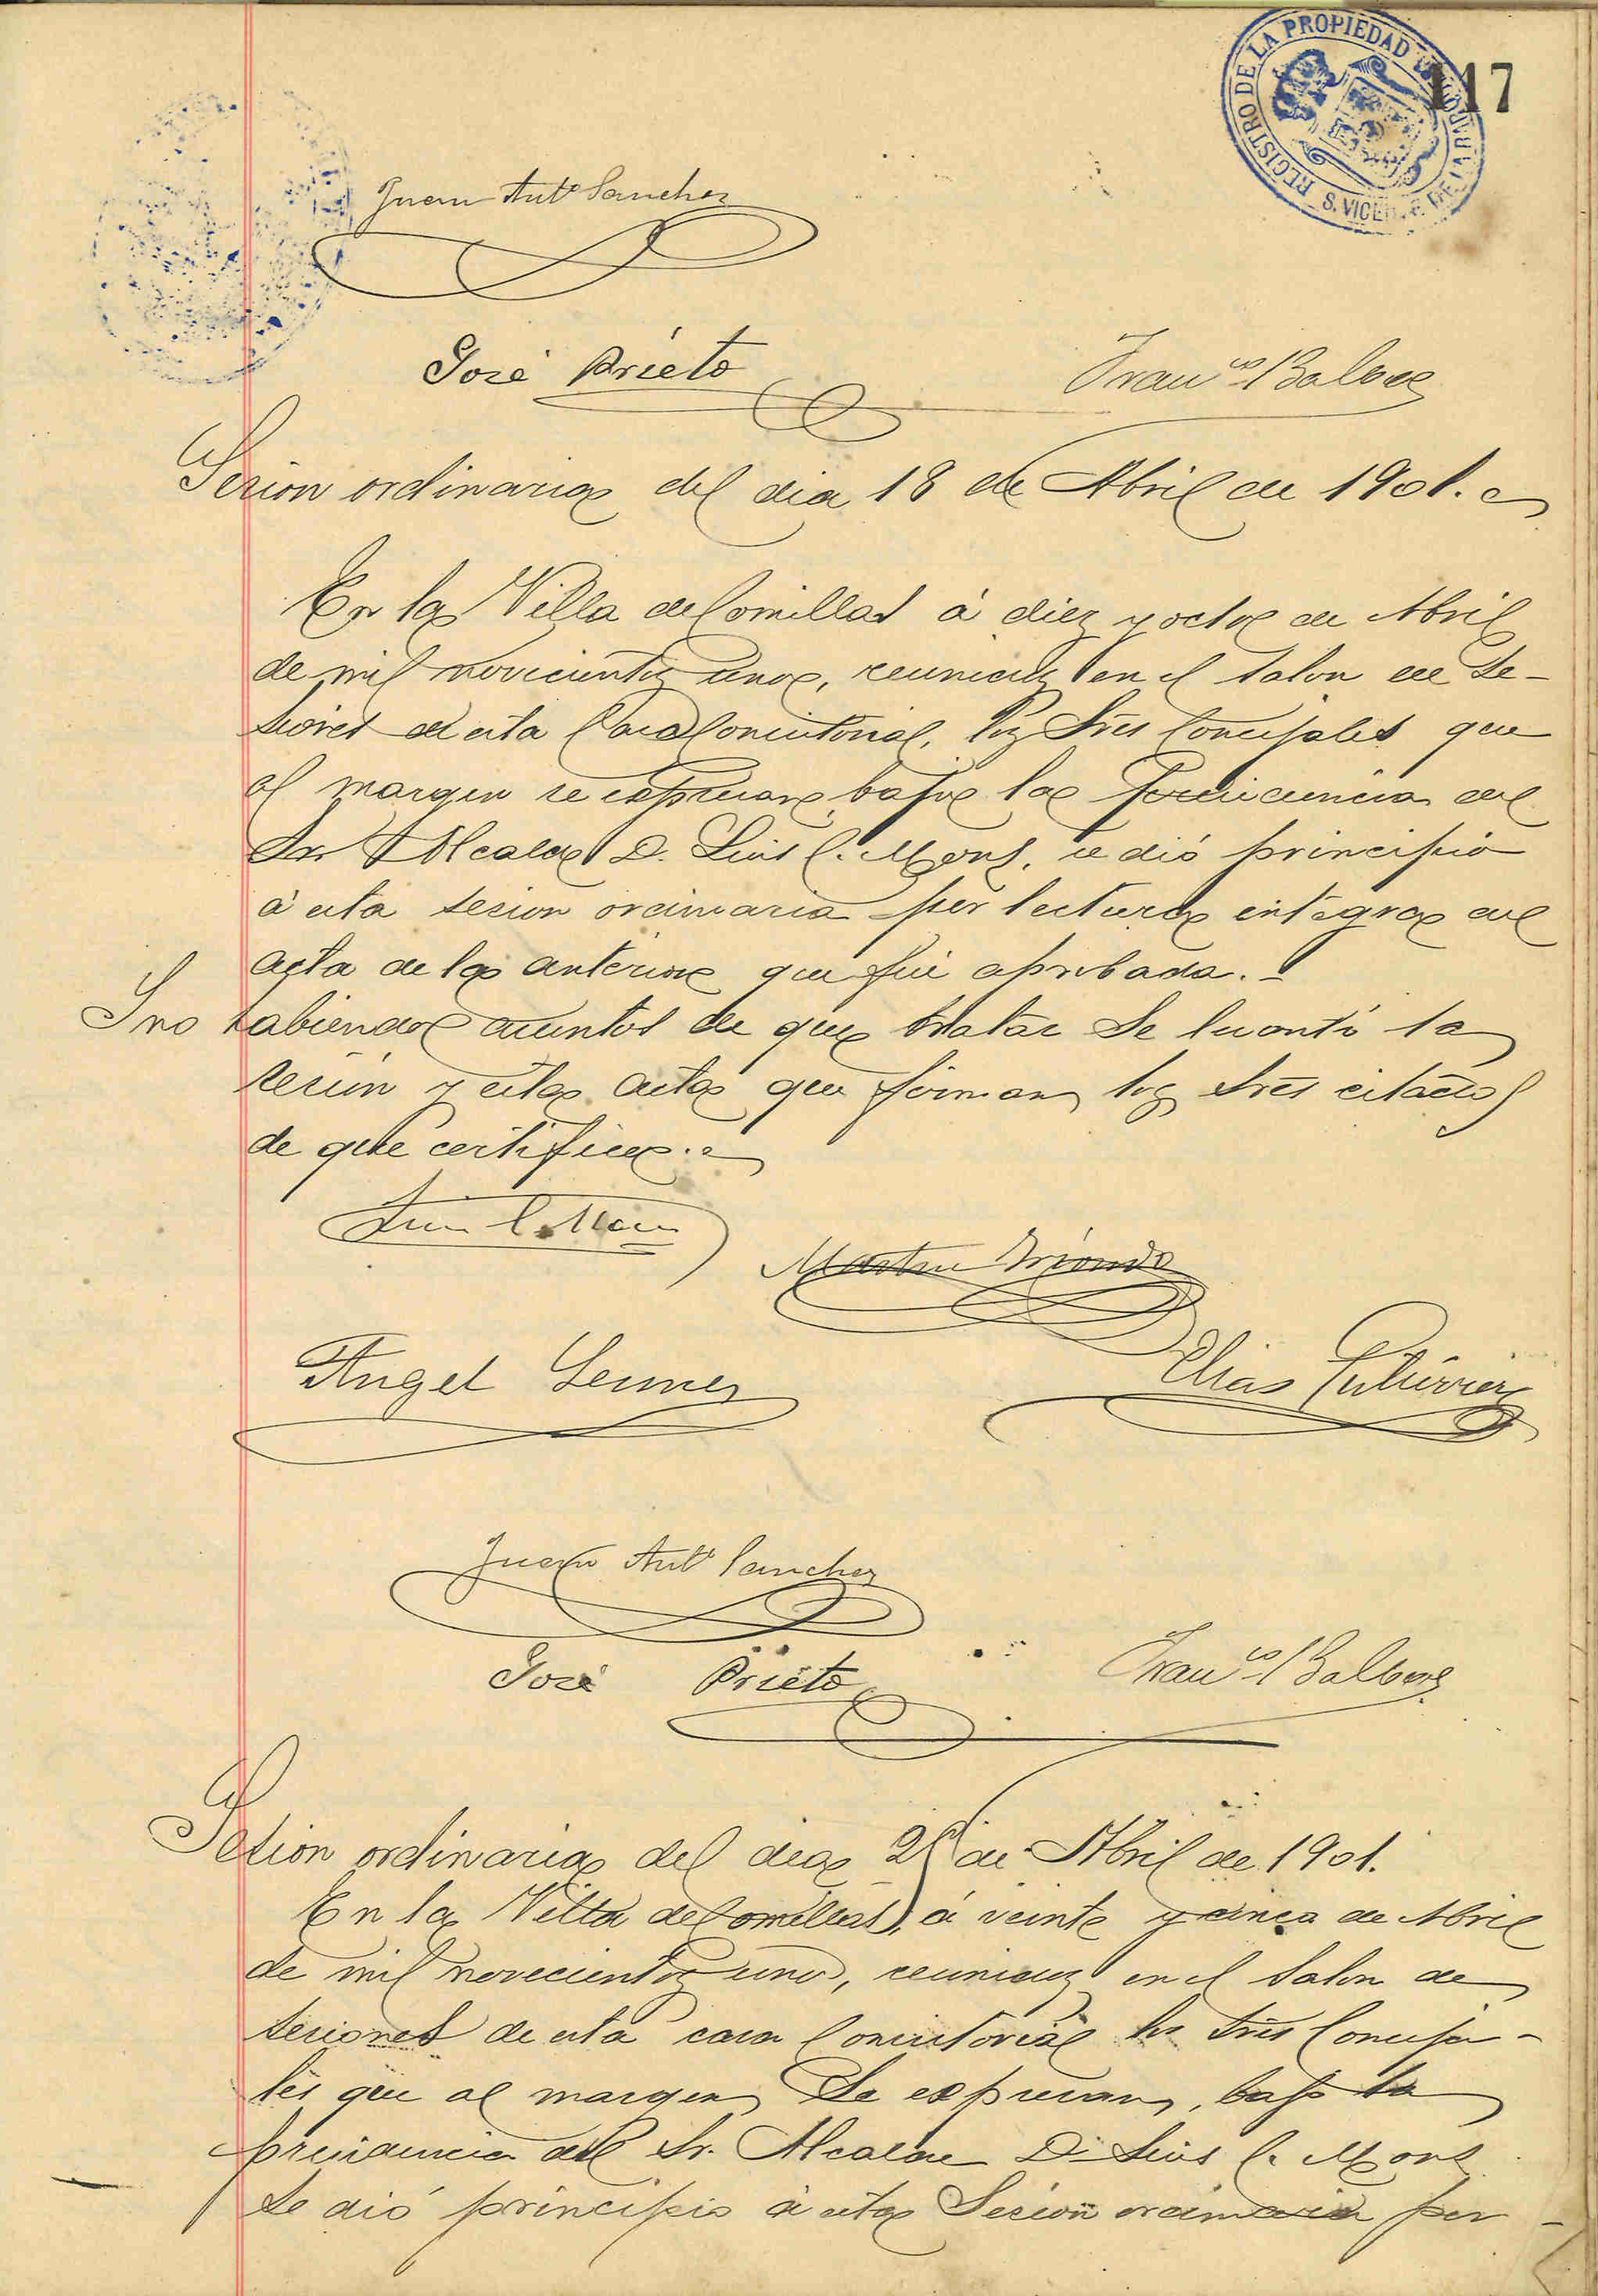 REGISTRO DE LA PROPIEDAD
S. VICENTE DE LA BARQUERA
117
Juan Antº Sanchez
José Prieto
Franco Balboa
Sesion ordinaria del dia 18 de Abril de 1901.
En la Villa de Comillas á diez y ocho de Abril
de mil novecientos uno, reunidos en el salon de Se-
siones de esta Casa Consistorial, los Sres Concejales que
al margen se expresan, bajo la Presidencia del
Sr Alcalde D. Luis C. Mons, se dió principio
á esta sesion ordinaria por lectura integra del
acta de la anterior que fué aprobada.-
Y no habiendo asuntos de que tratar Se levantó la
sesion y esta acta que firman los Sres citados
de que certifico.
Luis C. Mons
Martin
Angel
Elias Gutierrez
Juan Antº Sanchez
José Prieto
Franco Balboa
Sesion ordinaria del dia 25 de Abril de 1901.
En la Villa de Comillas, á veinte y cinco de Abril
de mil novecientos uno, reunidos en el Salon de
sesiones de esta casa Consistorial los Sres Conceja-
les que al margen Se expresan, bajo la
presidencia del Sr. Alcalde D. Luis C. Mons
Se dió principio á esta Sesion ordinaria por